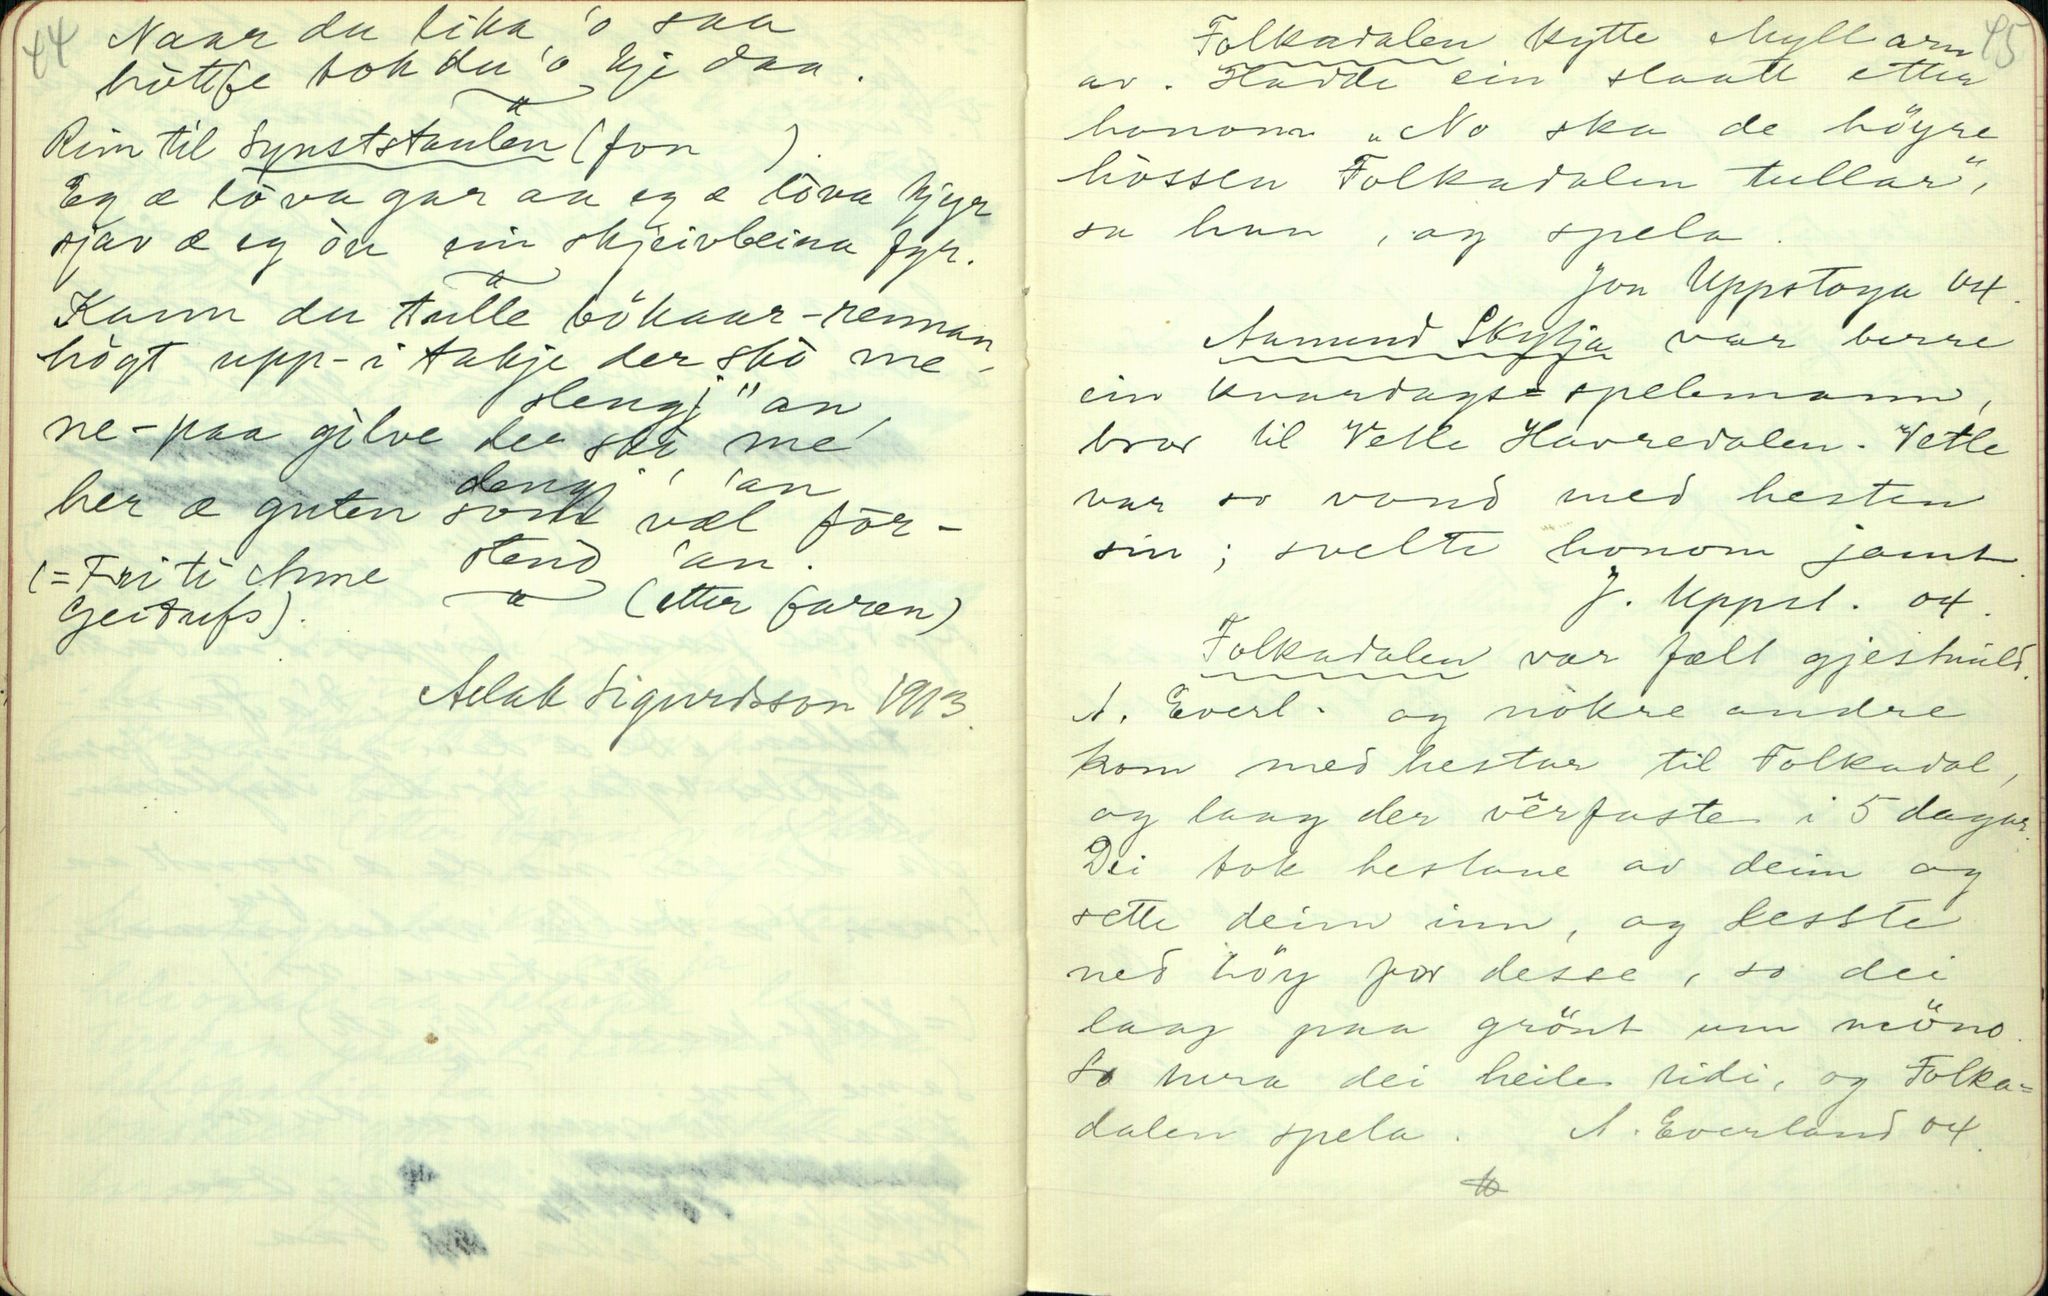 44
Naar du lika 'o saa
hôtfe tok du 'o kje daa.
Rim til Synststaulen (fon ).
Eg æ lôva gar aa eg æ lôva kjyr
sjav æ eg ôn ein skjeivbeina fyr.
Kann du tulle bôkaar-rennan
högt upp-i takje der skô me
slengj "an,
ne-paa gjilve der skô me
dengj 'an
her æ guten som væl fôr-
stend 'an.
(= Fri ti Arne
Geitufs).
(etter faren)
Aslak Sigurdsson 1913.
45
Folkadalen kytte Myllarn
av. Hadde ein slaatt etter
honom "No ska de höyre
hôssen Folkadalen tullar",
sa han, og spela.
Jon Uppstoga 04.
Aamund Skykja var berre
ein kvardags-spelemann,
bror til Vetle Havredalen. Vetle
var so vond med hesten
sin; svelte honom jamt.
J. Uppst. 04.
Folkadalen var fælt gjestmild.
A. Everl. og nokre andre
kom med hestar til Folkadal,
og laag der vêrfaste i 5 dagar.
Dei tok hestane av deim og
sette deim inn, og lesste
ned höy for desse, so dei
laag paa grönt um möno.
So tura dei heile tidi, og Folka=
dalen spela. A. Everland 04.